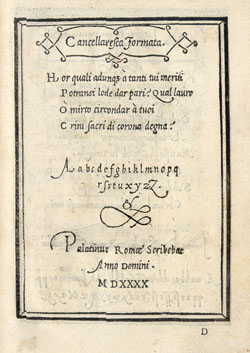 Cancellaresca Formata.
Hor quali adunqȝ à tanti tui meriti
Potransi lode dar pari? Qual lauro
O mirto circondar à tuoi
Crini sacri di corona degna?
Aabcdefghiklmnopq
rsstuxyzZ.
&
Palatinus Romæ Scribebat
Anno Domini.
MDXXXX
D